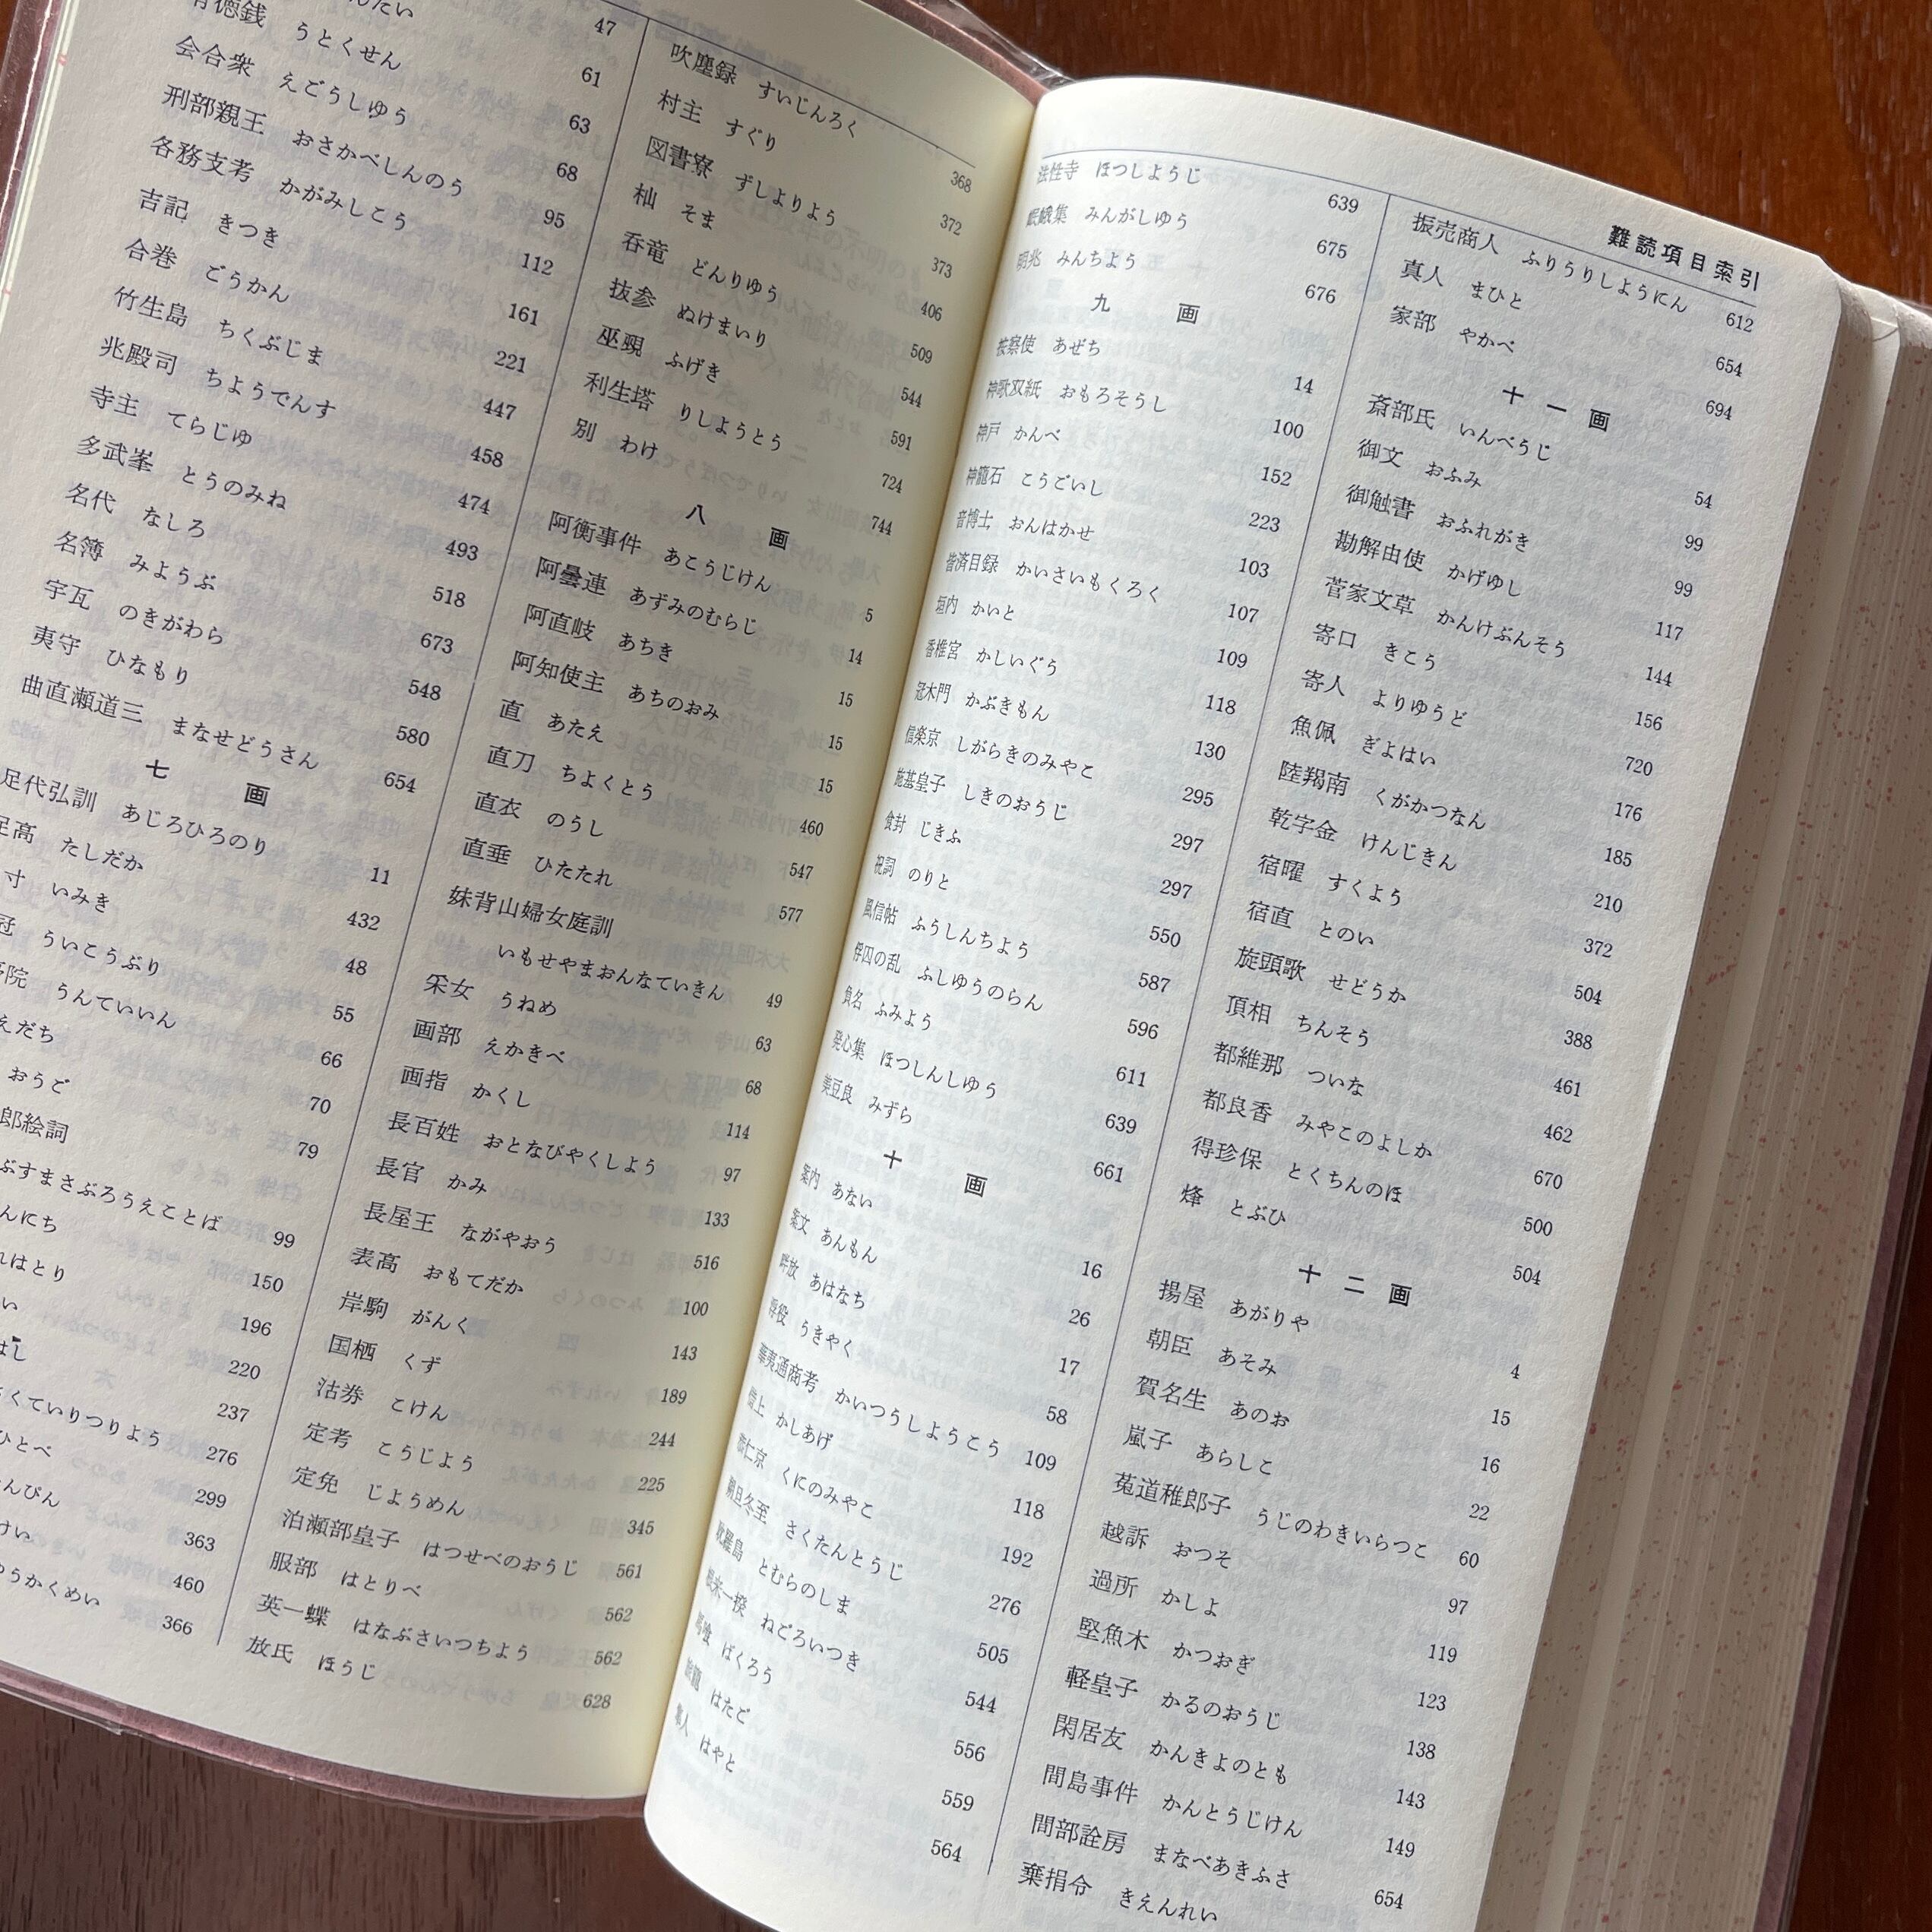 うとくせん 61
会合衆 えごうしゆう 63
刑部親王 おさかべしんのう 68
各務支考 かがみしこう 95
吉記 きつき 112
合巻 ごうかん 161
竹生島 ちくぶじま 221
兆殿司 ちようでんす 447
寺主 てらじゆ 458
多武峯 とうのみね 474
名代 なしろ 493
名簿 みようぶ 518
宇瓦 のきがわら 673
夷守 ひなもり 548
曲直瀬道三 まなせどうさん 580
654
七画
足代弘訓 あじろひろのり 11
足高 たしだか 432
寸 いみき 48
冠 ういこうぶり 55
院 うんていいん 66
えだち 70
おうご 79
郎絵詞
ぶすまさぶろうえことば 99
んにち 150
はとり 196
い 220
237
くていりつりよう 276
ひとべ 299
んぴん 363
けい 460
うかくめい 366
吹塵録 すいじんろく 368
村主 すぐり 372
図書寮 ずしよりよう 373
杣 そま 406
呑竜 どんりゆう 509
抜参 ぬけまいり 544
巫覡 ふげき 591
利生塔 りしようとう 724
別 わけ 744
八画
阿衡事件 あこうじけん 5
阿曇連 あずみのむらじ 14
阿直岐 あちき 15
阿知使主 あちのおみ 15
直 あたえ 15
直刀 ちよくとう 460
直衣 のうし 547
直垂 ひたたれ 577
妹背山婦女庭訓
いもせやまおんなていきん 49
采女 うねめ 63
画部 えかきべ 68
画指 かくし 114
長百姓 おとなびやくしよう 97
長官 かみ 133
長屋王 ながやおう 516
表高 おもてだか 100
岸駒 がんく 143
国栖 くず 189
沽券 こけん 244
定考 こうじよう 225
定免 じようめん 345
泊瀬部皇子 はつせべのおうじ 561
服部 はとりべ 562
英一蝶 はなぶさいつちよう 562
放氏 ほうじ 628
法性寺 ほつしようじ 639
岷峨集 みんがしゆう 675
明兆 みんちよう 676
九画
按察使 あぜち 14
神歌双紙 おもろそうし 100
神戸 かんべ 152
神籠石 こうごいし 223
音博士 おんはかせ 103
皆済目録 かいさいもくろく 107
垣内 かいと 109
香椎宮 かしいぐう 118
冠木門 かぶきもん 130
信楽京 しがらきのみやこ 295
施基皇子 しきのおうじ 297
食封 じきふ 297
祝詞 のりと 550
風信帖 ふうしんちよう 587
俘囚の乱 ふしゆうのらん 596
負名 ふみよう 611
発心集 ほつしんしゆう 639
美豆良 みずら 661
十画
案内 あない 16
案文 あんもん 26
畔放 あはなち 17
浮役 うきやく 58
華夷通商考 かいつうしようこう 109
借上 かしあげ 118
恭仁京 くにのみやこ 192
朔旦冬至 さくたんとうじ 276
耽羅島 とむらのしま 505
根来一揆 ねごろいつき 544
馬喰 ばくろう 556
旅籠 はたご 559
隼人 はやと 564
難読項目索引
振売商人 ふりうりしようにん 612
真人 まひと 654
家部 やかべ 694
十一画
斎部氏 いんべうじ 54
御文 おふみ 99
御触書 おふれがき 99
勘解由使 かげゆし 117
菅家文草 かんけぶんそう 144
寄口 きこう 156
寄人 よりゆうど 720
魚佩 ぎよはい 176
陸羯南 くがかつなん 185
乾字金 けんじきん 210
宿曜 すくよう 372
宿直 とのい 504
旋頭歌 せどうか 388
頂相 ちんそう 461
都維那 ついな 462
都良香 みやこのよしか 670
得珍保 とくちんのほ 500
烽 とぶひ 504
十二画
揚屋 あがりや 4
朝臣 あそみ 15
賀名生 あのお 16
嵐子 あらしこ 22
菟道稚郎子 うじのわきいらつこ 60
越訴 おつそ 97
過所 かしよ 119
堅魚木 かつおぎ 123
軽皇子 かるのおうじ 138
閑居友 かんきよのとも 143
間島事件 かんとうじけん 149
間部詮房 まなべあきふさ 654
棄捐令 きえんれい